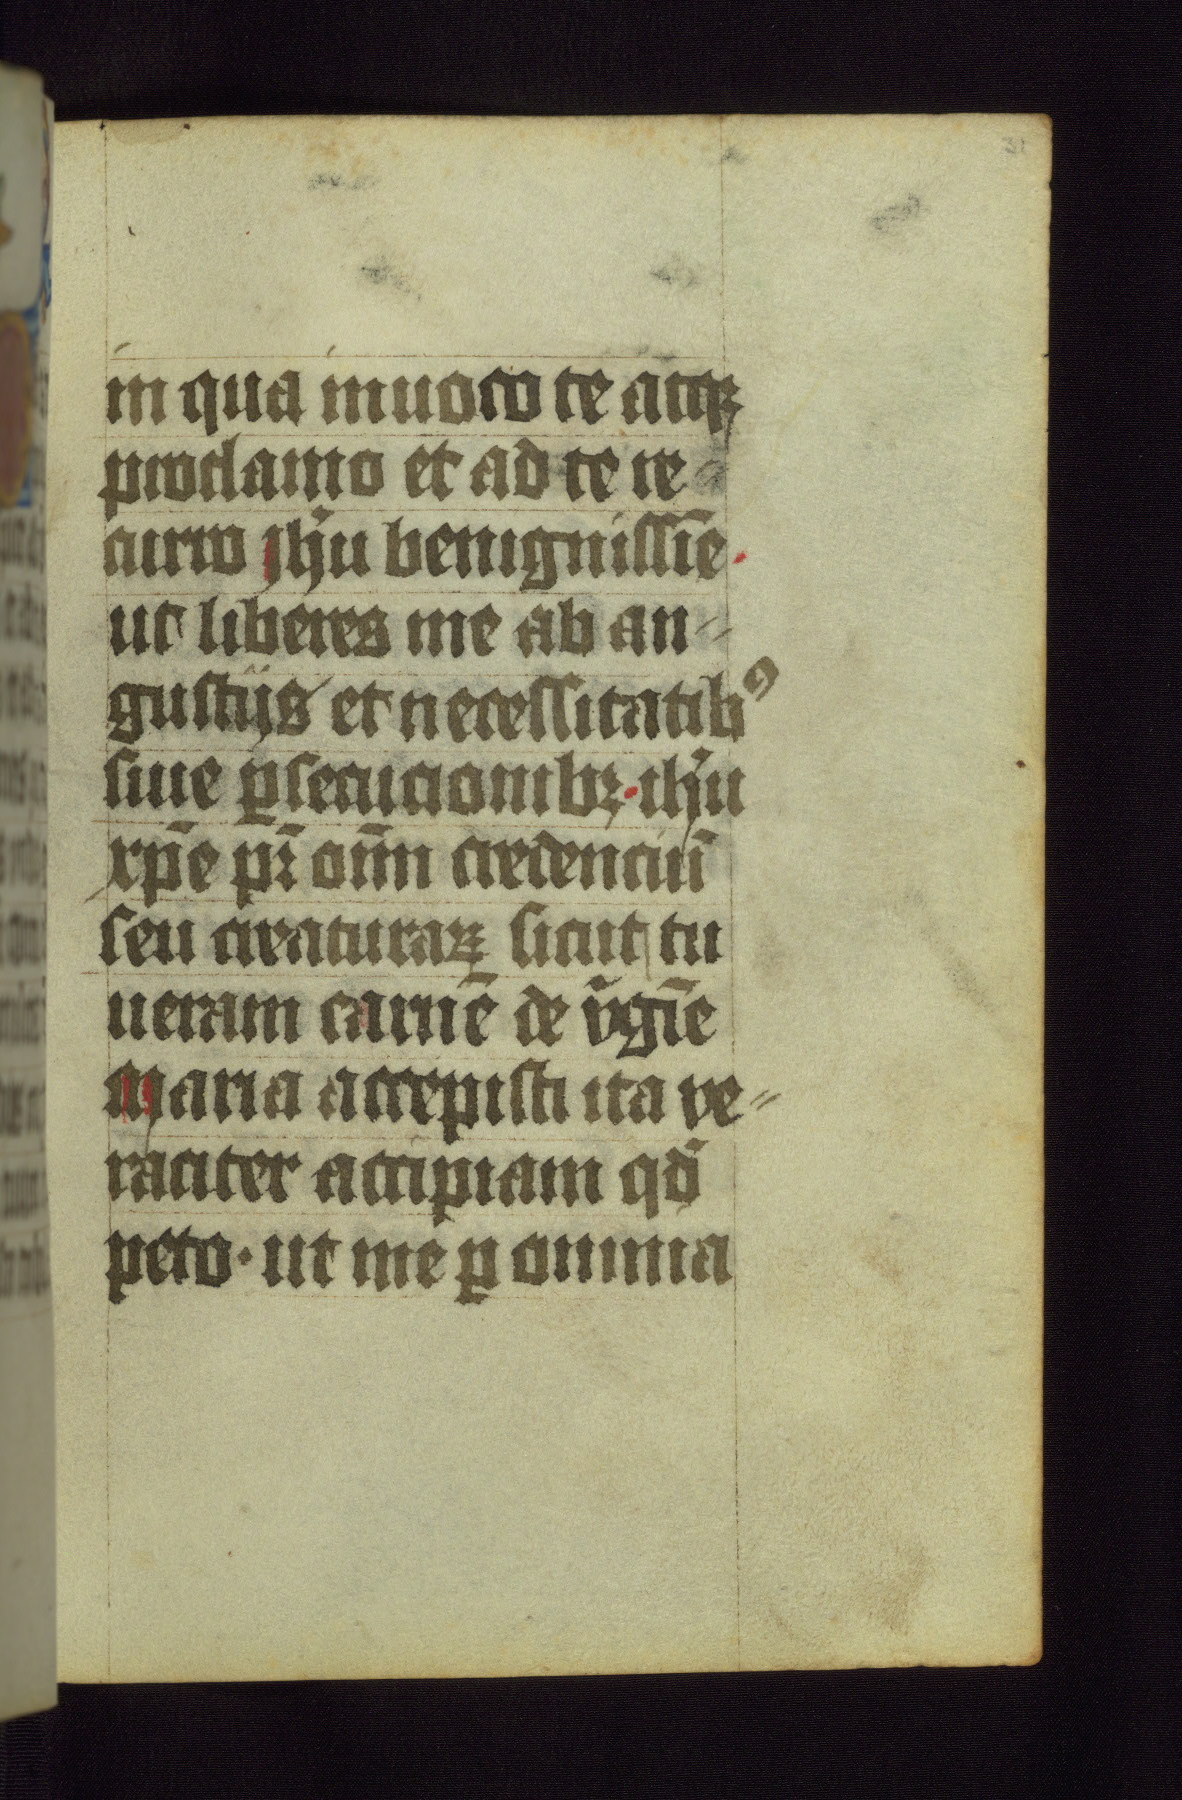 in qua inuoco te atqꝫ
proclamo et ad te re
curro Jhu̅ benignissi̅e
ut liberes me ab an⸗
gustijs et necessitatibꝰ
siue ꝑsecucionibꝫ· ihu̅
xp̅e pr̅ om̅n credenciu̅
seu creaturaꝝ sicut tu
ueram carne̅ de v̅gi̅e
Maria accepisti ita ve⸗
raciter accipiam qd̅
peto· ut me ꝑ omnia